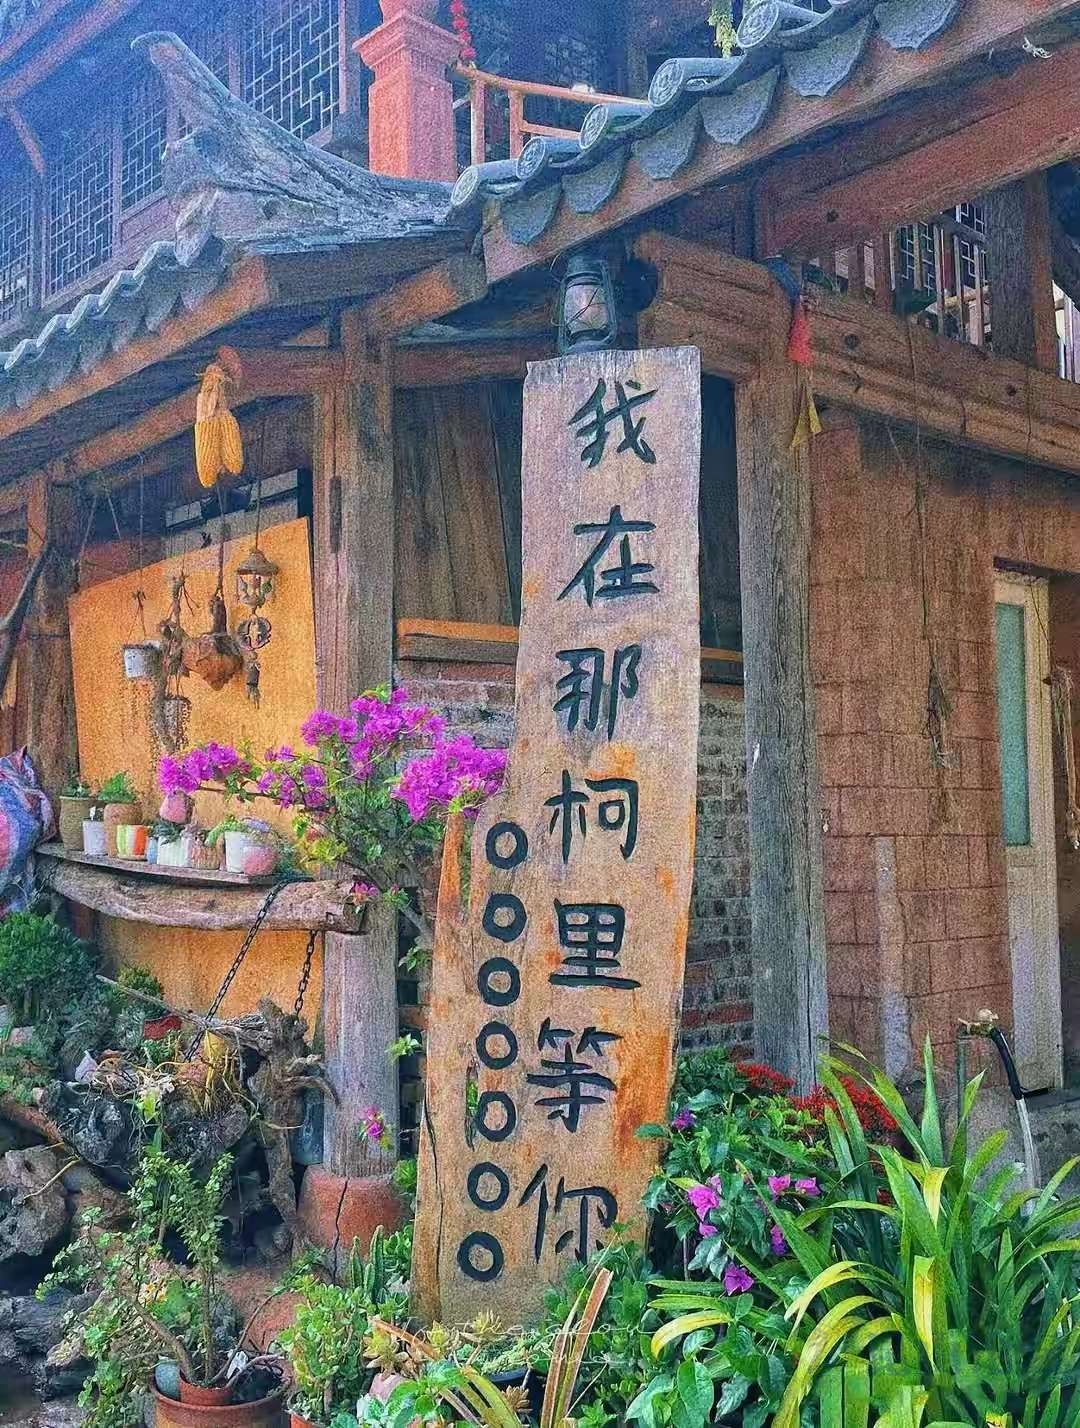 我在那柯里等你
○○○○○○○